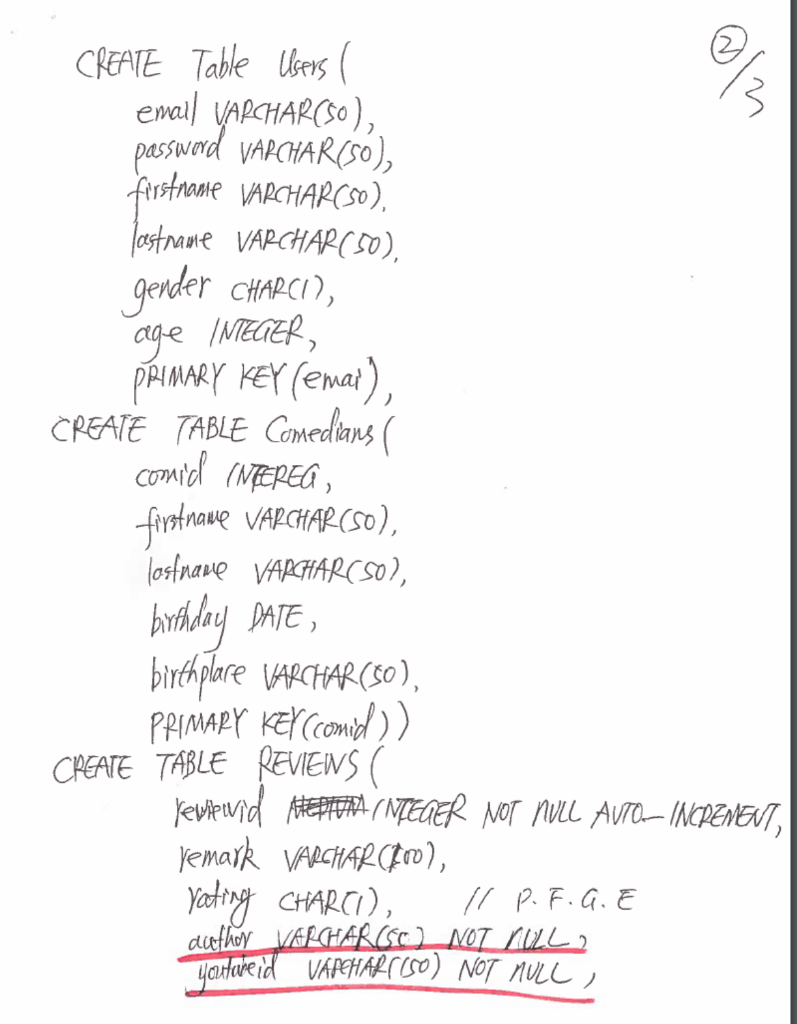 ②/3
CREATE Table Users (
email VARCHAR(50),
password VARCHAR(50),
firstname VARCHAR(50),
lastname VARCHAR(50),
gender CHAR(1),
age INTEGER,
PRIMARY KEY (emai),
CREATE TABLE Comedians (
comid INTEREG,
firstname VARCHAR(50),
lastname VARCHAR(50),
birthday DATE,
birthplace VARCHAR(50),
PRIMARY KEY (comid))
CREATE TABLE REVIEWS (
reviewid INTEGER NOT NULL AUTO_INCREMENT,
remark VARCHAR(100),
rating CHAR(1), // P.F.G.E
author VARCHAR(50) NOT NULL,
youtubeid VARCHAR(150) NOT NULL,